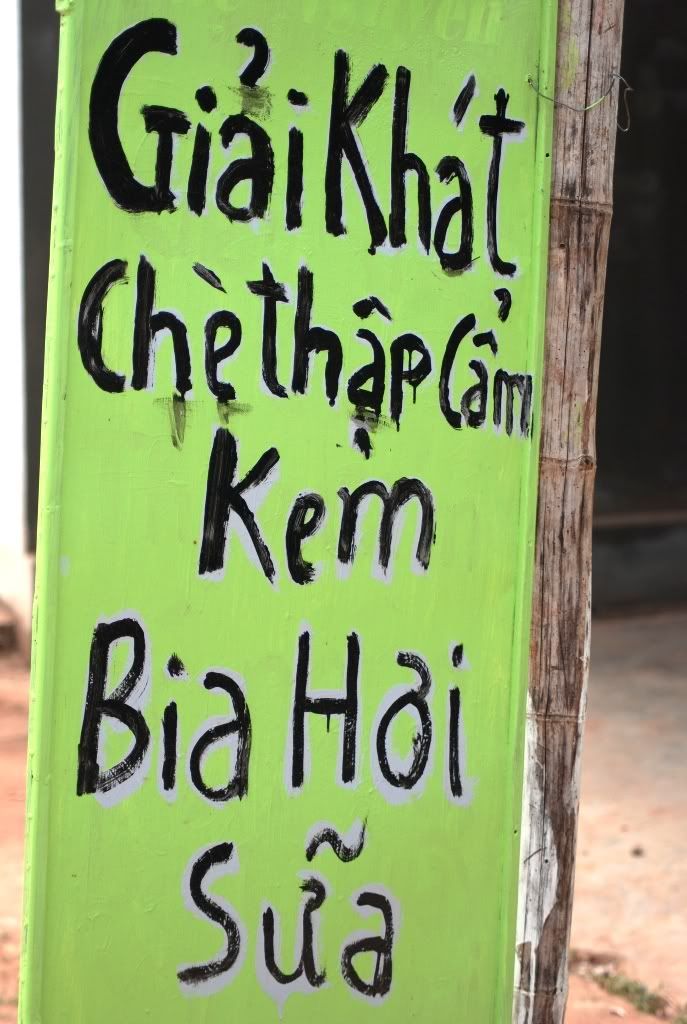 Giải Khát
Chè thập Cẩm
Kem
Bia Hơi
Sữa